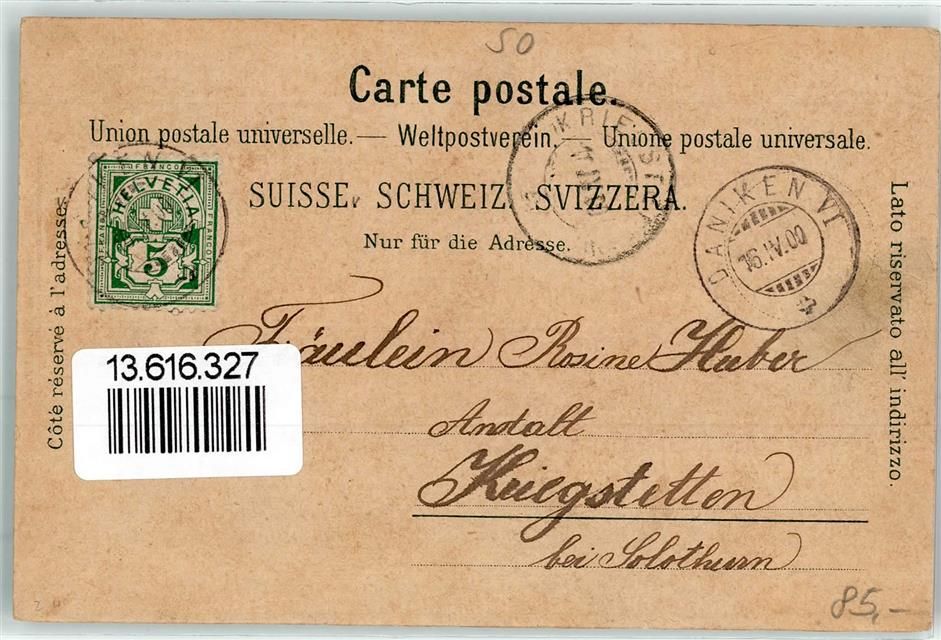 50
Carte postale.
Union postale universelle. — Weltpostverein. — Unione postale universale.
SUISSE. SCHWEIZ. SVIZZERA.
Nur für die Adresse.
Côté réservé à l'adresse.
Lato riservato all' indirizzo.
FRANCO
HELVETIA
FRANCO
FRANCO
5
DÄNIKEN VI
16.IV.00
13.616.327
Fräulein Rosine Huber
Anstalt
Kriegstetten
bei Solothurn
85,-